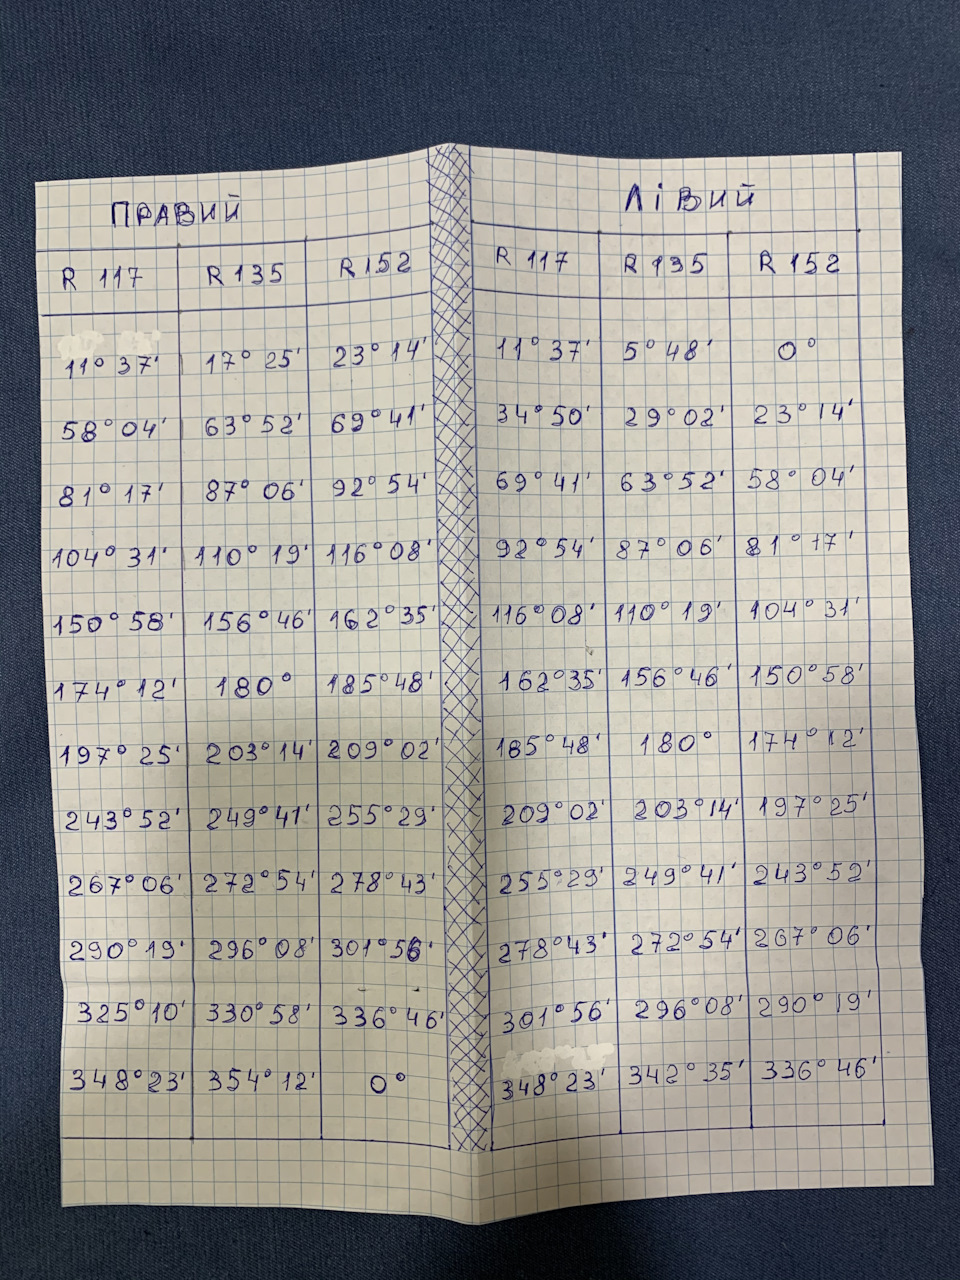 ПРАВИЙ ЛІВИЙ
R 117 R 135 R 152 R 117 R 135 R 152
11° 37' 17° 25' 23° 14' 11° 37' 5° 48' 0°
58° 04' 63° 52' 69° 41' 34° 50' 29° 02' 23° 14'
81° 17' 87° 06' 92° 54' 69° 41' 63° 52' 58° 04'
104° 31' 110° 19' 116° 08' 92° 54' 87° 06' 81° 17'
150° 58' 156° 46' 162° 35' 116° 08' 110° 19' 104° 31'
174° 12' 180° 185° 48' 162° 35' 156° 46' 150° 58'
197° 25' 203° 14' 209° 02' 185° 48' 180° 174° 12'
243° 52' 249° 41' 255° 29' 209° 02' 203° 14' 197° 25'
267° 06' 272° 54' 278° 43' 255° 29' 249° 41' 243° 52'
290° 19' 296° 08' 301° 56' 278° 43' 272° 54' 267° 06'
325° 10' 330° 58' 336° 46' 301° 56' 296° 08' 290° 19'
348° 23' 354° 12' 0° 348° 23' 342° 35' 336° 46'